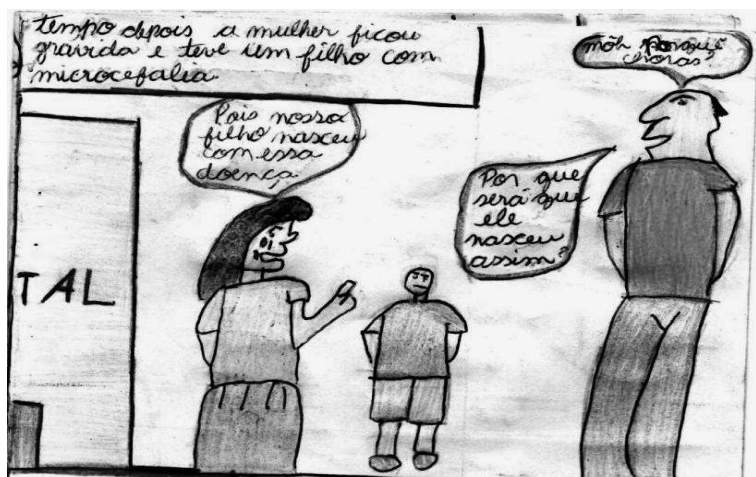 tempo depois a mulher ficou
gravida e teve um filho com
microcefalia
môh porquê
choras?
Pois nosso
filho nasceu
com essa
doença
Por que
será que
ele
nasceu
assim?
TAL